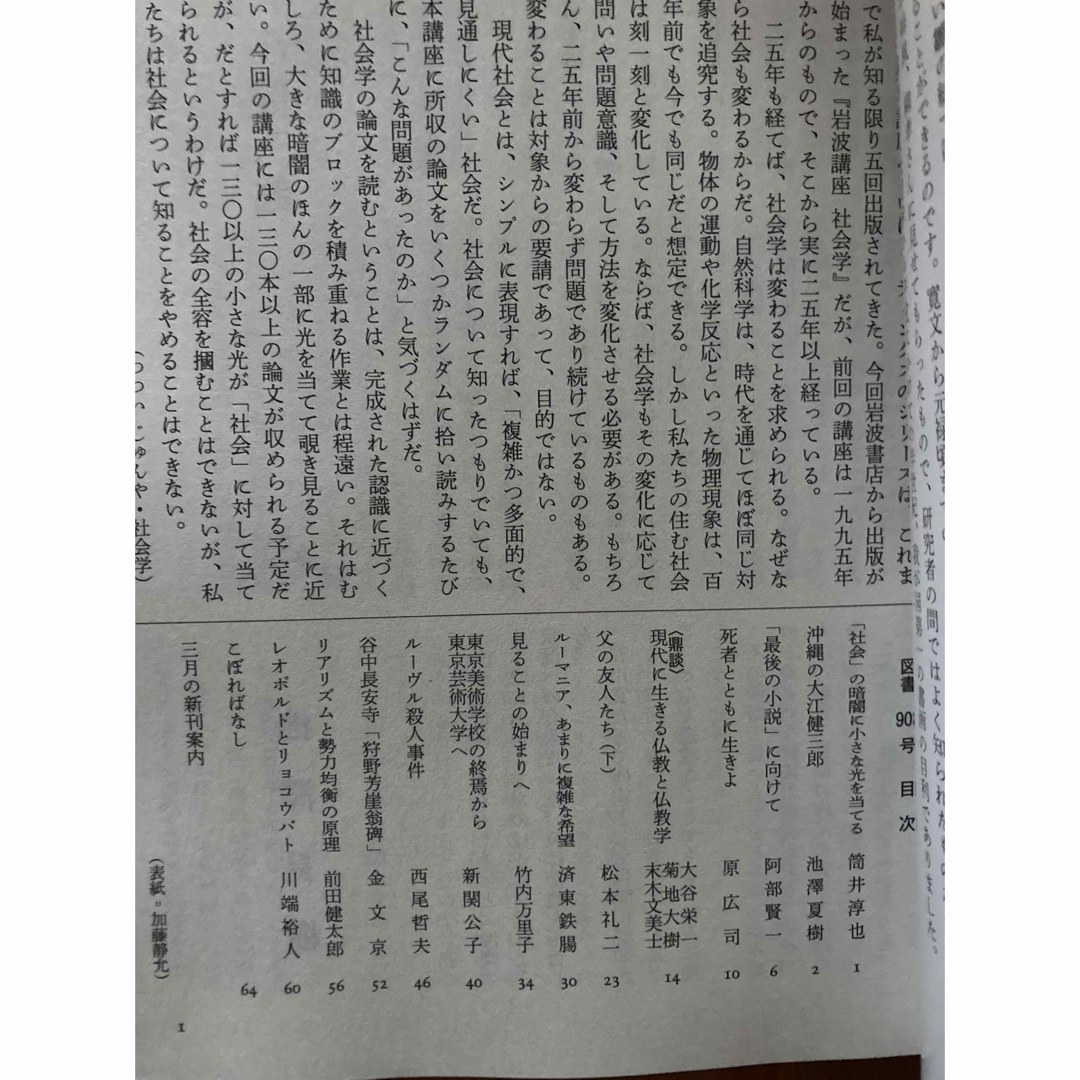 で私が知る限り五回出版されてきた。今回岩波書店から出版が
始まった『岩波講座　社会学』だが、前回の講座は一九九五年
からのもので、そこから実に二五年以上経っている。
二五年も経てば、社会学は変わることを求められる。なぜな
ら社会も変わるからだ。自然科学は、時代を通じてほぼ同じ対
象を追究する。物体の運動や化学反応といった物理現象は、百
年前でも今でも同じだと想定できる。しかし私たちの住む社会
は刻一刻と変化している。ならば、社会学もその変化に応じて
問いや問題意識、そして方法を変化させる必要がある。もちろ
ん、二五年前から変わらず問題であり続けているものもある。
変わることは対象からの要請であって、目的ではない。
現代社会とは、シンプルに表現すれば、「複雑かつ多面的で、
見通しにくい」社会だ。社会について知ったつもりでいても、
本講座に所収の論文をいくつかランダムに拾い読みするたび
に、「こんな問題があったのか」と気づくはずだ。
社会学の論文を読むということは、完成された認識に近づく
ために知識のブロックを積み重ねる作業とは程遠い。それはむ
しろ、大きな暗闇のほんの一部に光を当てて覗き見ることに近
い。今回の講座には一三〇本以上の論文が収められる予定だ
が、だとすれば一三〇以上の小さな光が「社会」に対して当て
られるというわけだ。社会の全容を摑むことはできないが、私
たちは社会について知ることをやめることはできない。
（つつい じゅんや・社会学）
図書　908号　目次
「社会」の暗闇に小さな光を当てる　筒井淳也　1
沖縄の大江健三郎　池澤夏樹　2
「最後の小説」に向けて　阿部賢一　6
死者とともに生きよ　原広司　10
〈鼎談〉
現代に生きる仏教と仏教学　大谷栄一　菊地大樹　末木文美士　14
父の友人たち（下）　松本礼二　23
ルーマニア、あまりに複雑な希望　済東鉄腸　30
見ることの始まりへ　竹内万里子　34
東京美術学校の終焉から
東京芸術大学へ　新関公子　40
ルーヴル殺人事件　西尾哲夫　46
谷中長安寺「狩野芳崖翁碑」　金文京　52
リアリズムと勢力均衡の原理　前田健太郎　56
レオポルドとリョコウバト　川端裕人　60
こぼればなし　64
三月の新刊案内
（表紙＝加藤静允）
1